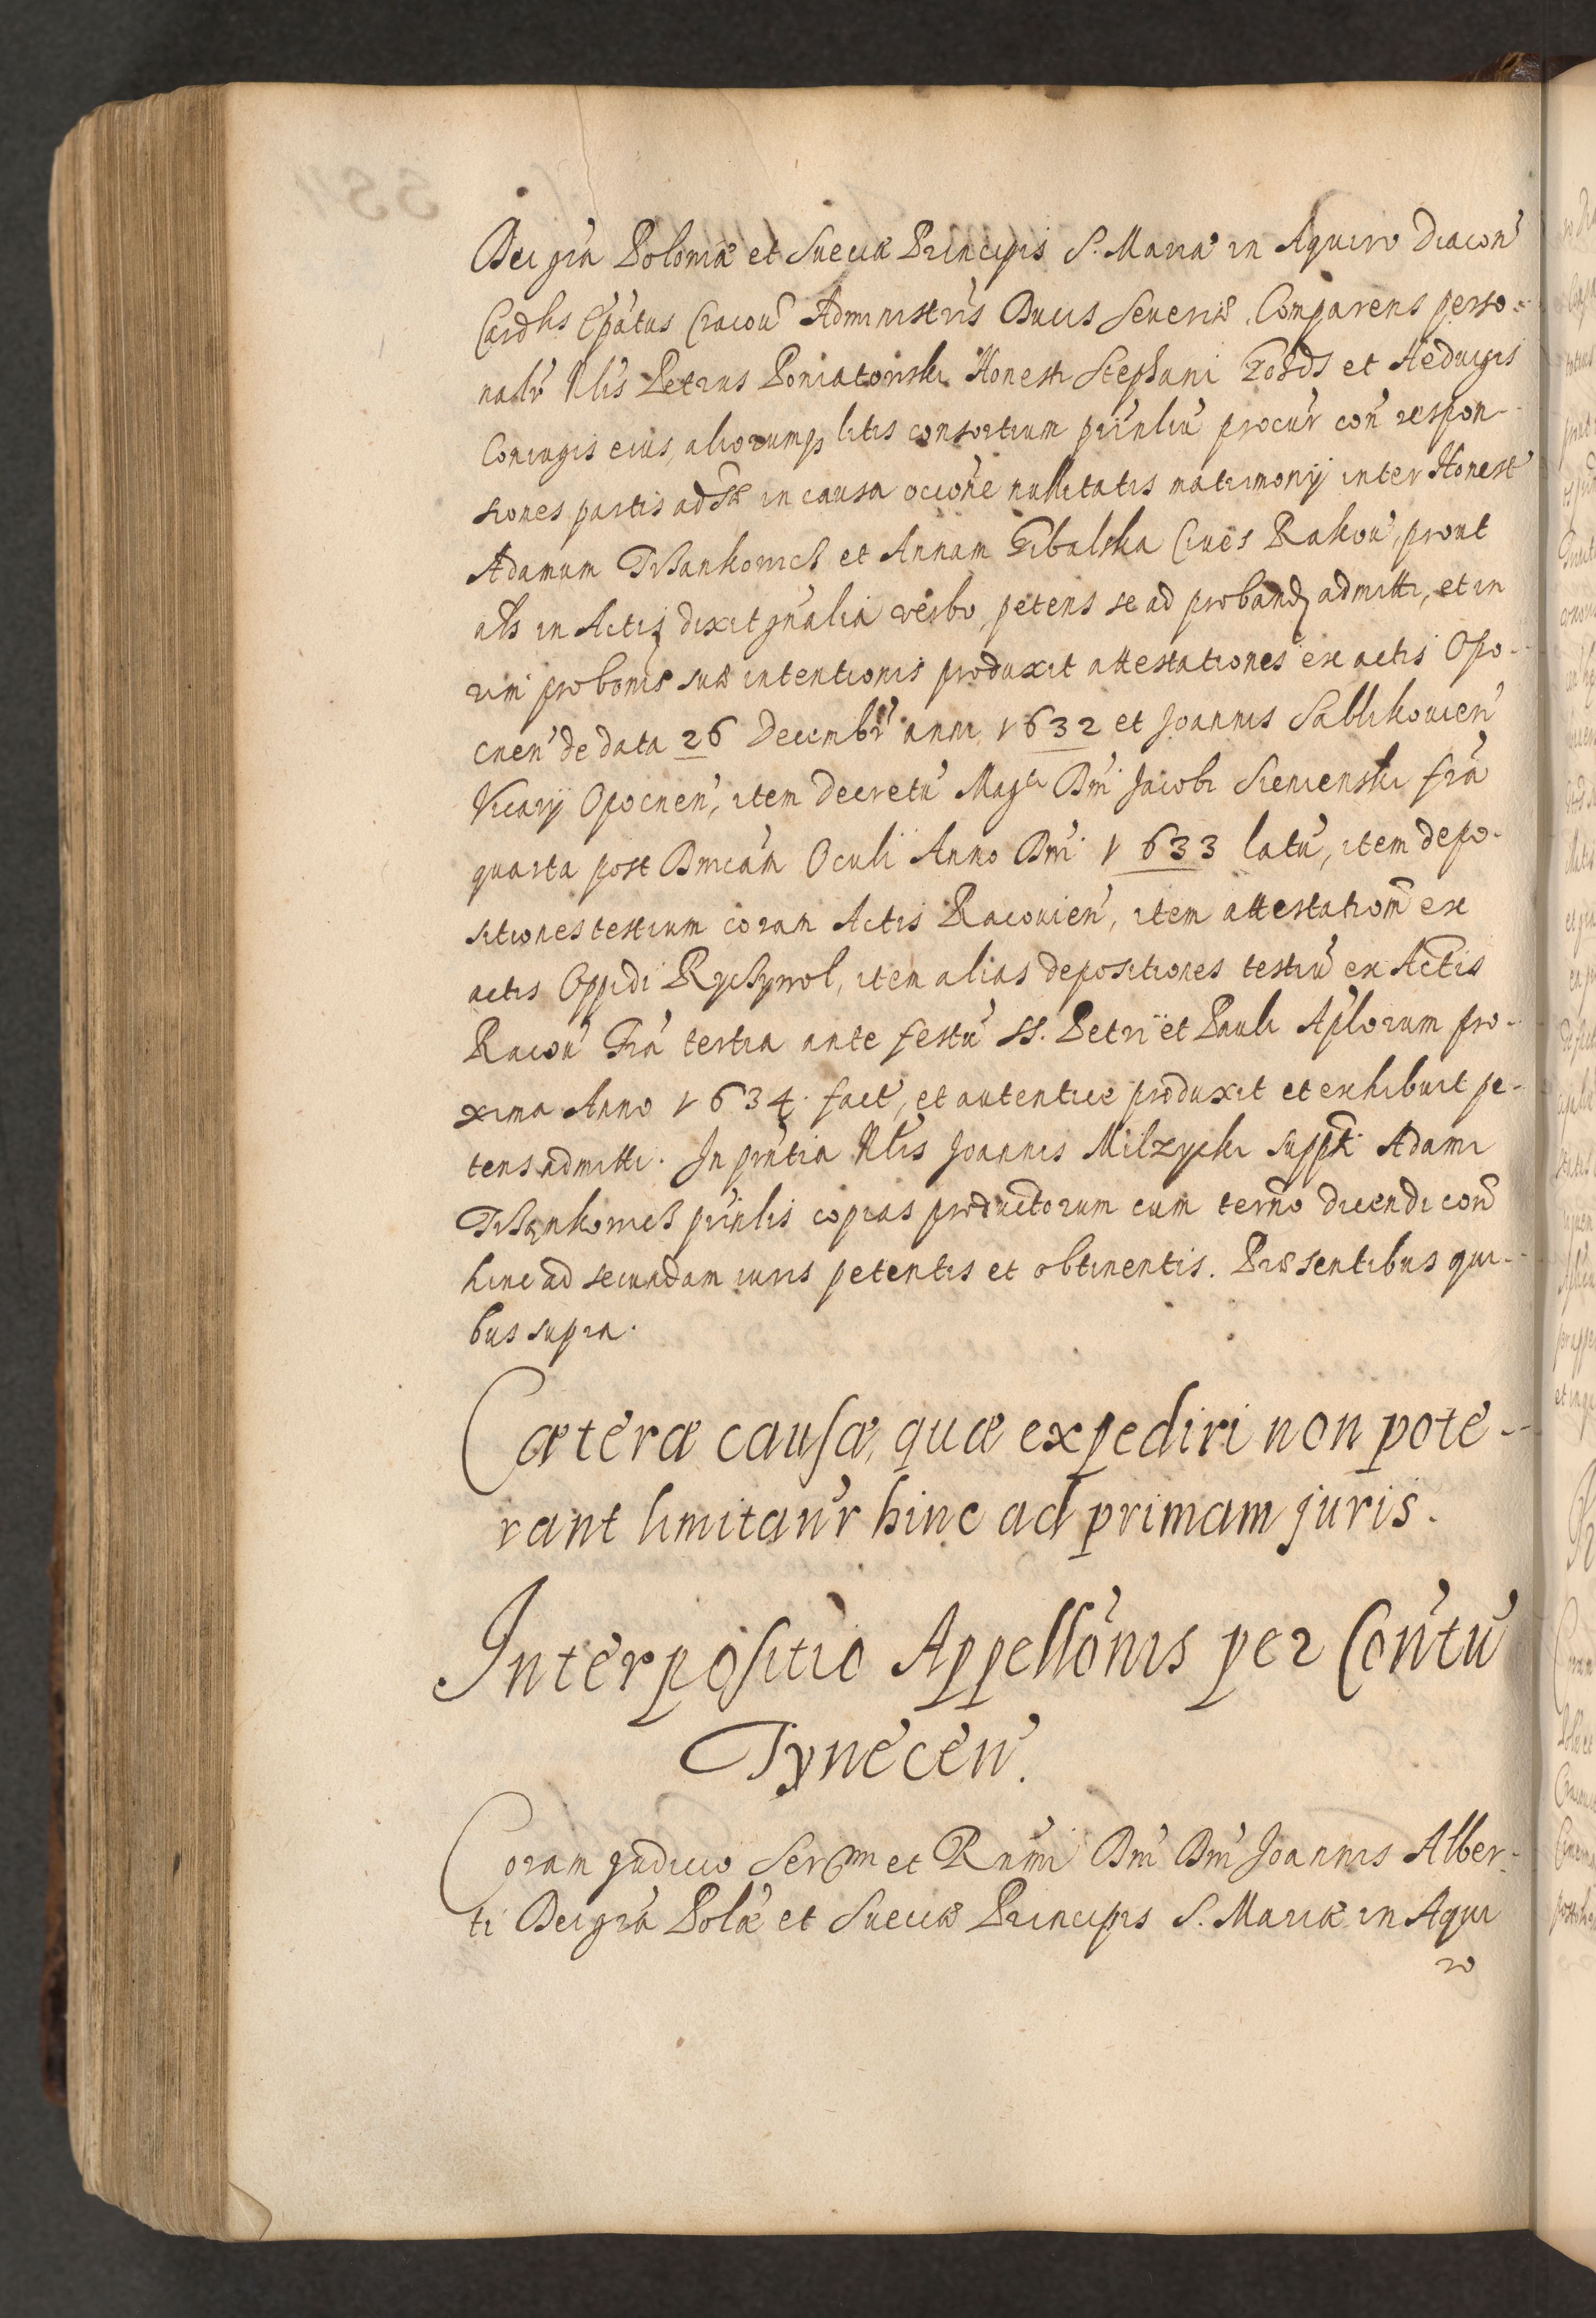 Dei gra'a Poloniæ et Sueciæ Principis S. Mariæ in Aquiro Diacon'
Cardlis Ep'atus Cracov' Administr'is Ducis Severiæ. Comparens perso-
nalr' Nlis Petrus Poniatowski Honesti Stephani et Heduigis
Coniugis eius, aliorumq3 litis consortium prin'liu' procur' con' respon-
siones partis ads'æ in causa occ'one nullitatis matrimonij inter Honest'
Adamum et Annam Cives Rakov', prout
als in Actis dixit gn'alia verbo, petens se ad proband admitti, et in
vim probonis suæ intentionis produxit attestationes ex actis Opo-
cnen' de data 26 Decembr' anni 1632 et Joannis Sablikovien'
Vicarij Opocnen', item decretu' Magci Dni' Jacobi Sienienski fr'a
quarta post Dnica'm Oculi Anno Dni' 1633 latu', item depo-
sitiones testium coram Actis Racovien', item attestation' ex
actis Oppidi Rychywol, item alias depositiones testiu' ex Actis
Racov' Fr'a tertia ante festu' SS. Petri et Pauli Ap'lorum pro-
xima Anno 1634. fact', et autentice produxit et exhibuit pe-
tens admitti. In pn'tia Nlis Joannis Milzycki Adami
prin'lis copias productorum cum termo' dicendi con'
hinc ad secundam iuris petentis et obtinentis. Præsentibus qui-
bus supra.
Cæteræ causæ, quæ expediri non pote-
rant limitan'r hinc ad primam juris.
Interpositio Appello'nis per Con'tu'
Tynecen'.
Coram Judicio Sermi et Rn'mi Dni' Dni' Joannis Alber-
ti Dei gra'a Pol'æ et Sueciæ Principis S. Mariæ in Aqui
ro